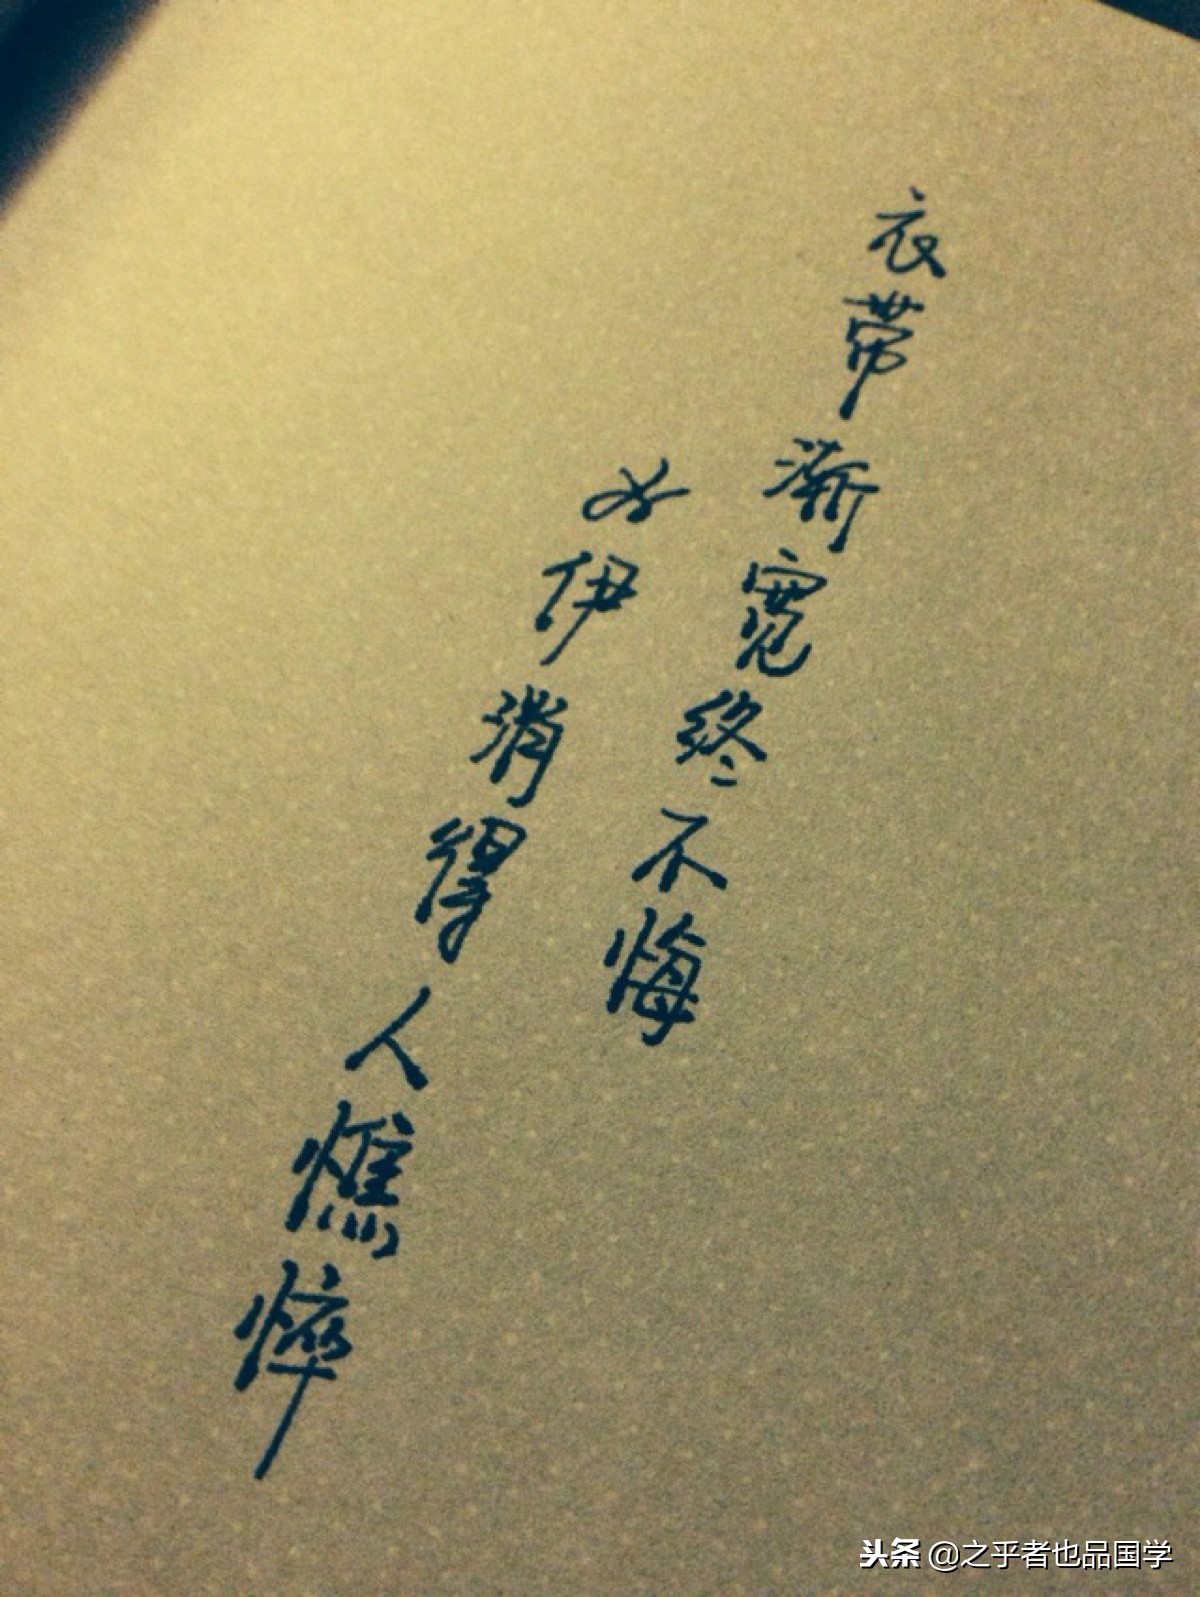 衣带渐宽终不悔
为伊消得人憔悴
头条 @之乎者也品国学